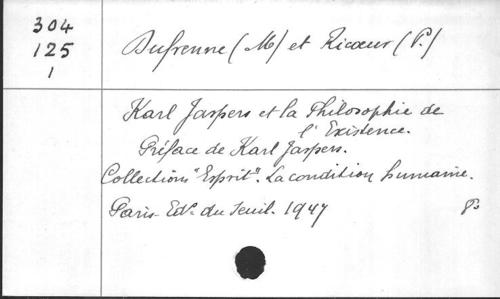 304
125
1
Dufrenne (M) et Ricœur (P.)
Karl Jaspers et la Philosophie de
l'Existence.
Préface de Karl Jaspers.
Collections "Esprit". La condition humaine.
Paris - Edns du Seuil. 1947